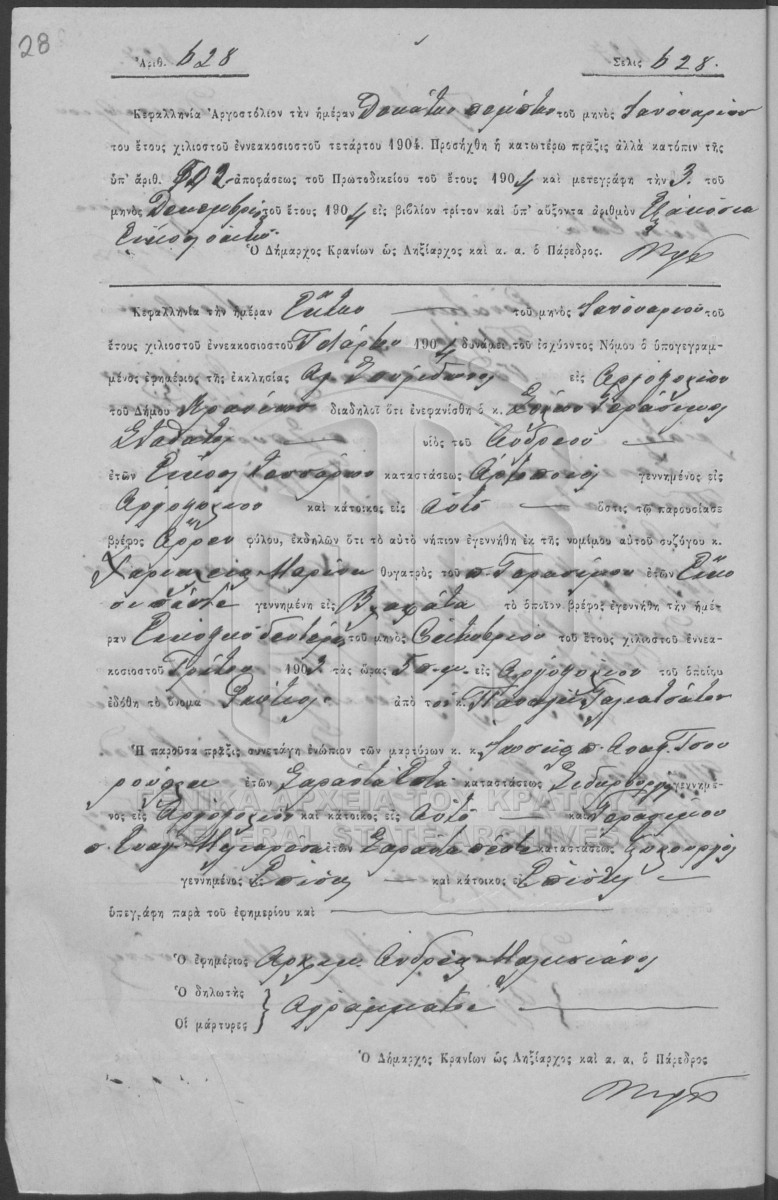 28
Ἀριθ. 628
Σελὶς 628.
Κεφαλληνία Ἀργοστόλιον τὴν ἡμέραν Δεκάτην πέμπτην τοῦ μηνὸς Ἰανουαρίου
του ἔτους χιλιοστοῦ ἐννεακοσιοστοῦ τετάρτου 1904. Προσήχθη ἡ κατωτέρω πρᾶξις ἀλλὰ κατόπιν τῆς
ὑπ' ἀριθ. ἀποφάσεως τοῦ Πρωτοδικείου τοῦ ἔτους 1904 καὶ μετεγράφη τὴν 3. τοῦ
μηνὸς Δεκεμβρίου τοῦ ἔτους 1904 εἰς βιβλίον τρίτον καὶ ὑπ' αὔξοντα ἀριθμὸν Ἑξακόσια
Εἴκοσι ὀκτώ
Ὁ Δήμαρχος Κρανίων ὡς Ληξίαρχος καὶ α. α. ὁ Πάρεδρος.
Κεφαλληνία τὴν ἡμέραν Ἕκτην τοῦ μηνὸς Ἰανουαρίου τοῦ
ἔτους χιλιοστοῦ ἐννεακοσιοστοῦ Τετάρτου 1904 δυνάμει τοῦ ἰσχύοντος Νόμου ὁ ὑπογεγραμ-
μένος ἐφημέριος τῆς ἐκκλησίας Αγ. Σπυρίδωνος εἰς Αργοστόλιον
τοῦ Δήμου Κρανίων διαδηλοῖ ὅτι ἐνεφανίσθη ὁ κ. Σπύρων Γεράσιμος
Σταθάτος υἱὸς τοῦ Ανδρέου
ἐτῶν Εἴκοσι τεσσάρων καταστάσεως Αρτοποιός γεννημένος εἰς
Αργοστόλιον καὶ κάτοικος εἰς αὐτό ὅστις τῷ παρουσίασε
βρέφος Αρρεν φύλου, ἐκδηλῶν ὅτι τὸ αὐτὸ νήπιον ἐγεννήθη ἐκ τῆς νομίμου αὐτοῦ συζύγου κ.
θυγατρὸς τοῦ π. Γερασίμου ἐτῶν Εἴκο
σι πέντε γεννημένη εἰς Βλαχάτα τὸ ὁποῖον βρέφος ἐγεννήθη τὴν ἡμέ-
ραν Εἰκοστὴν δευτέραν τοῦ μηνὸς Οκτωβρίου τοῦ ἔτους χιλιοστοῦ ἐννεα-
κοσιοστοῦ Τρίτου 1903 τὰς ὥρας 5 π.μ. εἰς Αργοστόλιον τοῦ ὁποίου
ἐδόθη τὸ ὄνομα ἀπὸ τὸν κ. Παναγῆ Γαλιατσάτον
Ἡ παροῦσα πρᾶξις συνετάγη ἐνώπιον τῶν μαρτύρων κ. κ. Ἰωσὴφ π. Αναγ. Τσου
ρούφλη ἐτῶν Σαράντα ἑπτά καταστάσεως Σιδηρουργὸς γεννημέ-
νος εἰς Αργοστόλιον καὶ κάτοικος εἰς αὐτό καὶ Γερασίμου
π. ἐτῶν Σαράντα πέντε καταστάσεως ξυλουργός
γεννημένος εἰς καὶ κάτοικος εἰς
ὑπεγράφη παρὰ τοῦ ἐφημερίου καὶ
Ὁ ἐφημέριος Αρχιμ. Ανδρέας
Ὁ δηλωτὴς
Οἱ μάρτυρες
Αγράμματοι
Ὁ Δήμαρχος Κρανίων ὡς Ληξίαρχος καὶ α. α. ὁ Πάρεδρος
ΓΕΝΙΚΑ ΑΡΧΕΙΑ ΤΟΥ ΚΡΑΤΟΥΣ
GENERAL STATE ARCHIVES